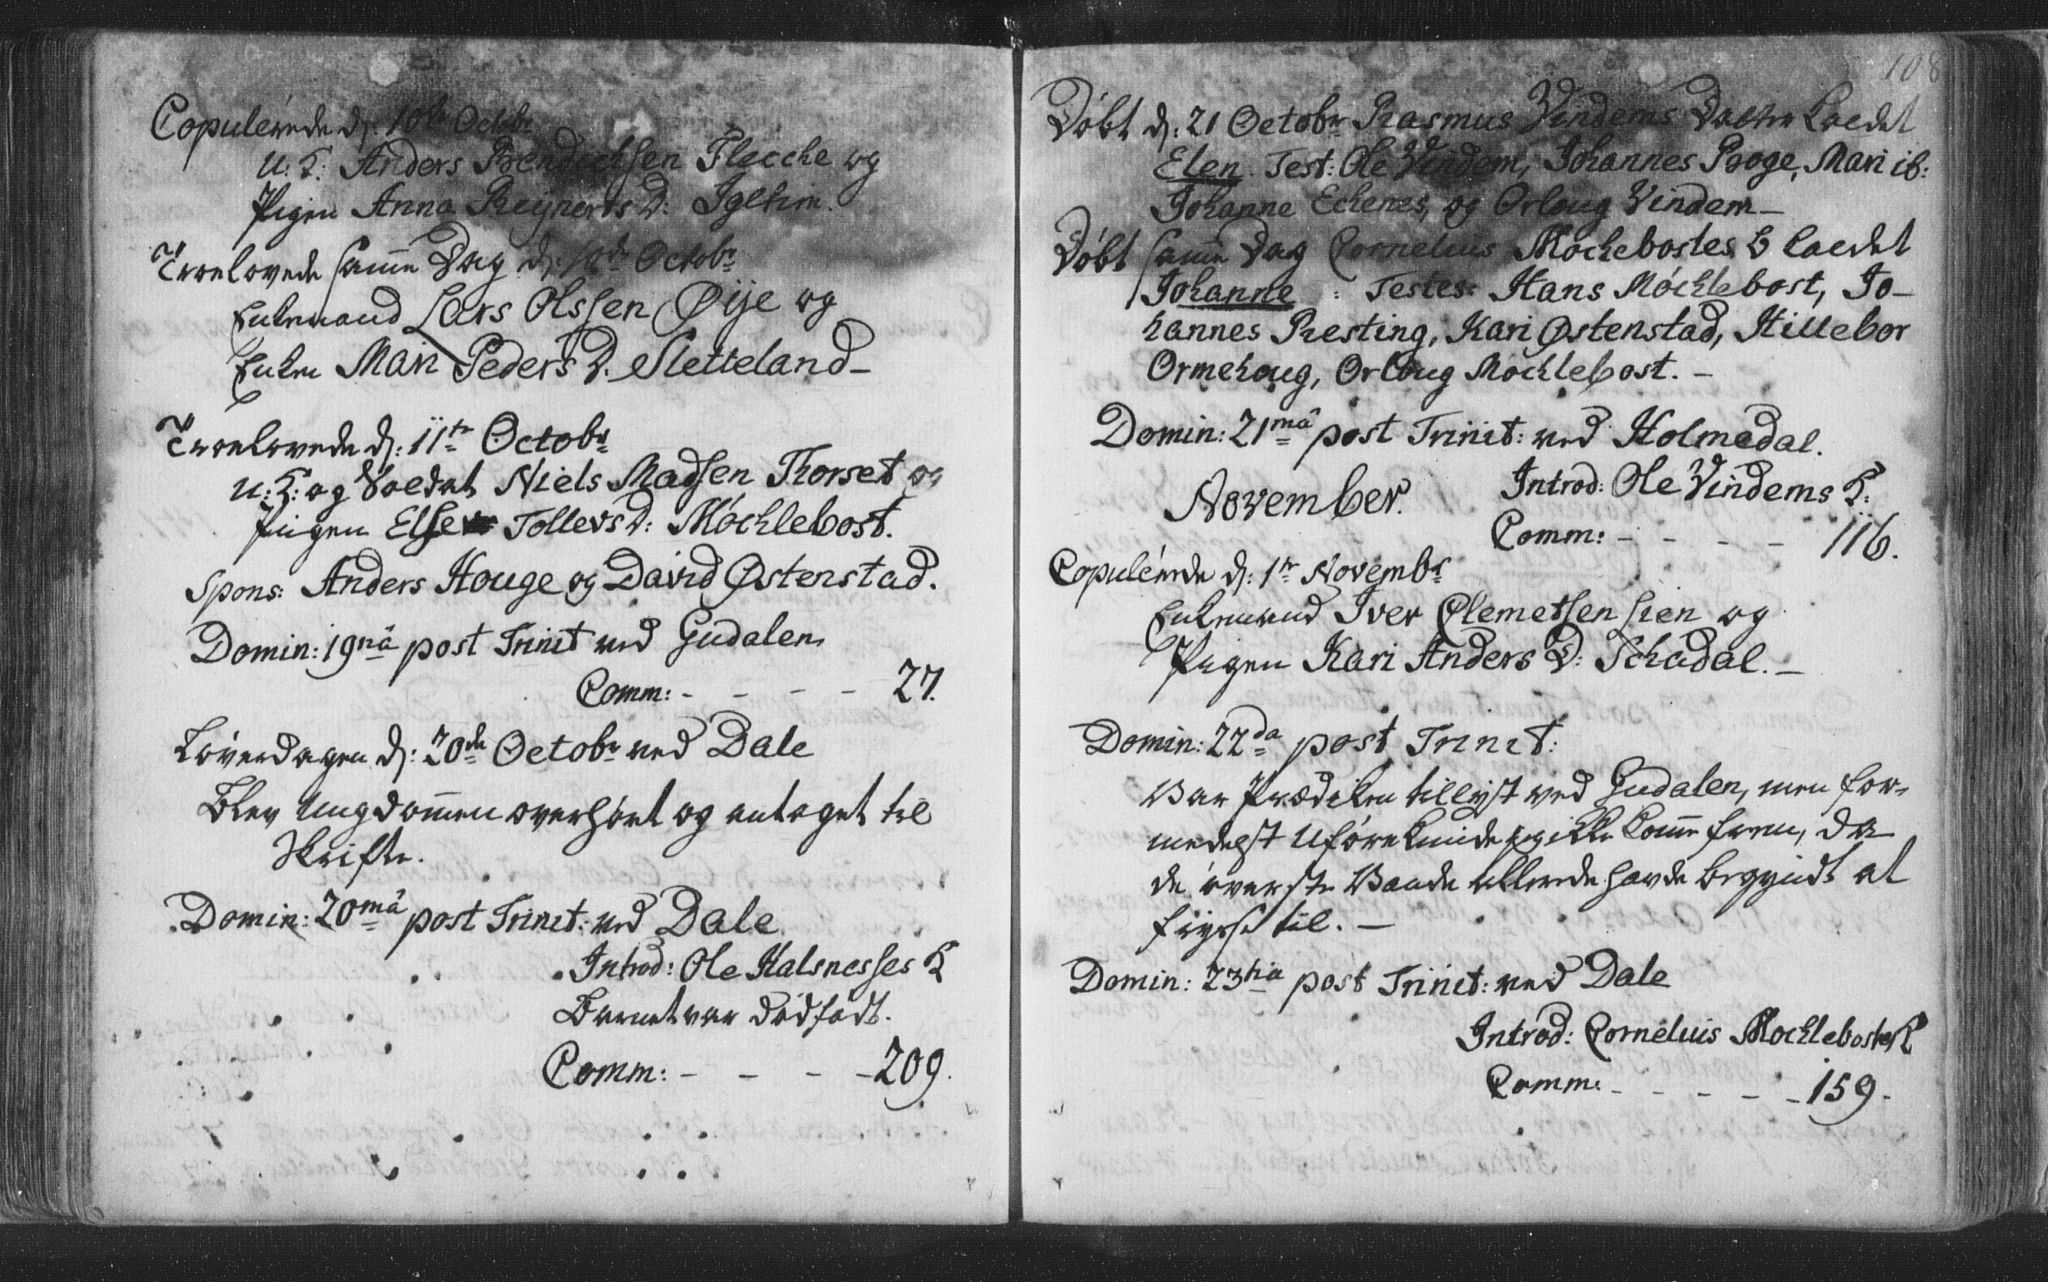 Copulerede d: 10de Octobr
U: K: Anders Bendichsen Flecche og
Pigen Anna Reijners D: Igltim.
Troelovede samme Dag d: 10de Octobr
Enkemand Lars Olssen Øije og
Enken Mari Peders D. Sletteland
Troelovede d: 11te Octobr
U: K: og Soldat Niels Madsen Thorset og
Pigen Else Tollevs D: Móchlebost.
Spons: Anders Houge og David Østenstad.
Domin: 19nâ post Trinit ved Gudalen
Comm: - - - - 27.
Løverdagen d: 20de Octobr ved Dale
Blev Ungdommen overhört og antaget til
Skrifte.
Domin: 20mâ post Trinit: ved Dale
Introd: Ole Kalsnesses K
Barnet var dödfödt.
Comm: - - - - 209.
108
Döbt d: 21 Octobr Rasmus Vindems Datter kaldet
Elen. Test: Ole Vindem, Johannes Boge, Mari ib:
Johanne Echenes, og Orloug Vindem
Döbt samme Dag Cornelius Mochebostes b kaldet
Johanne : Testes: Hans Móchlebost, Jo-
hannes Resting, Kari Østenstad, Hillebor
Ormehoug, Orloug Mochlebost. -
Domin: 21mâ post Trinit: ved Holmedal.
Introd: Ole Vindems K:
November.
Comm: - - - - 116.
Copulerede d: 1te Novembr
Enkemand Iver Clemetsen Lien og
Pigen Kari Anders D: Schadal. -
Domin: 22da post Trinit:
Var Prædiken tillyst ved Gudalen, men for-
medelst Uføre kunde jeg ikke komme frem, da
de øverste Vande allerede havde begyndt at
frysse til. -
Domin: 23tia post Trinit: ved Dale
Introd: Cornelius Mochlebostes K
Comm: - - - - - 159.